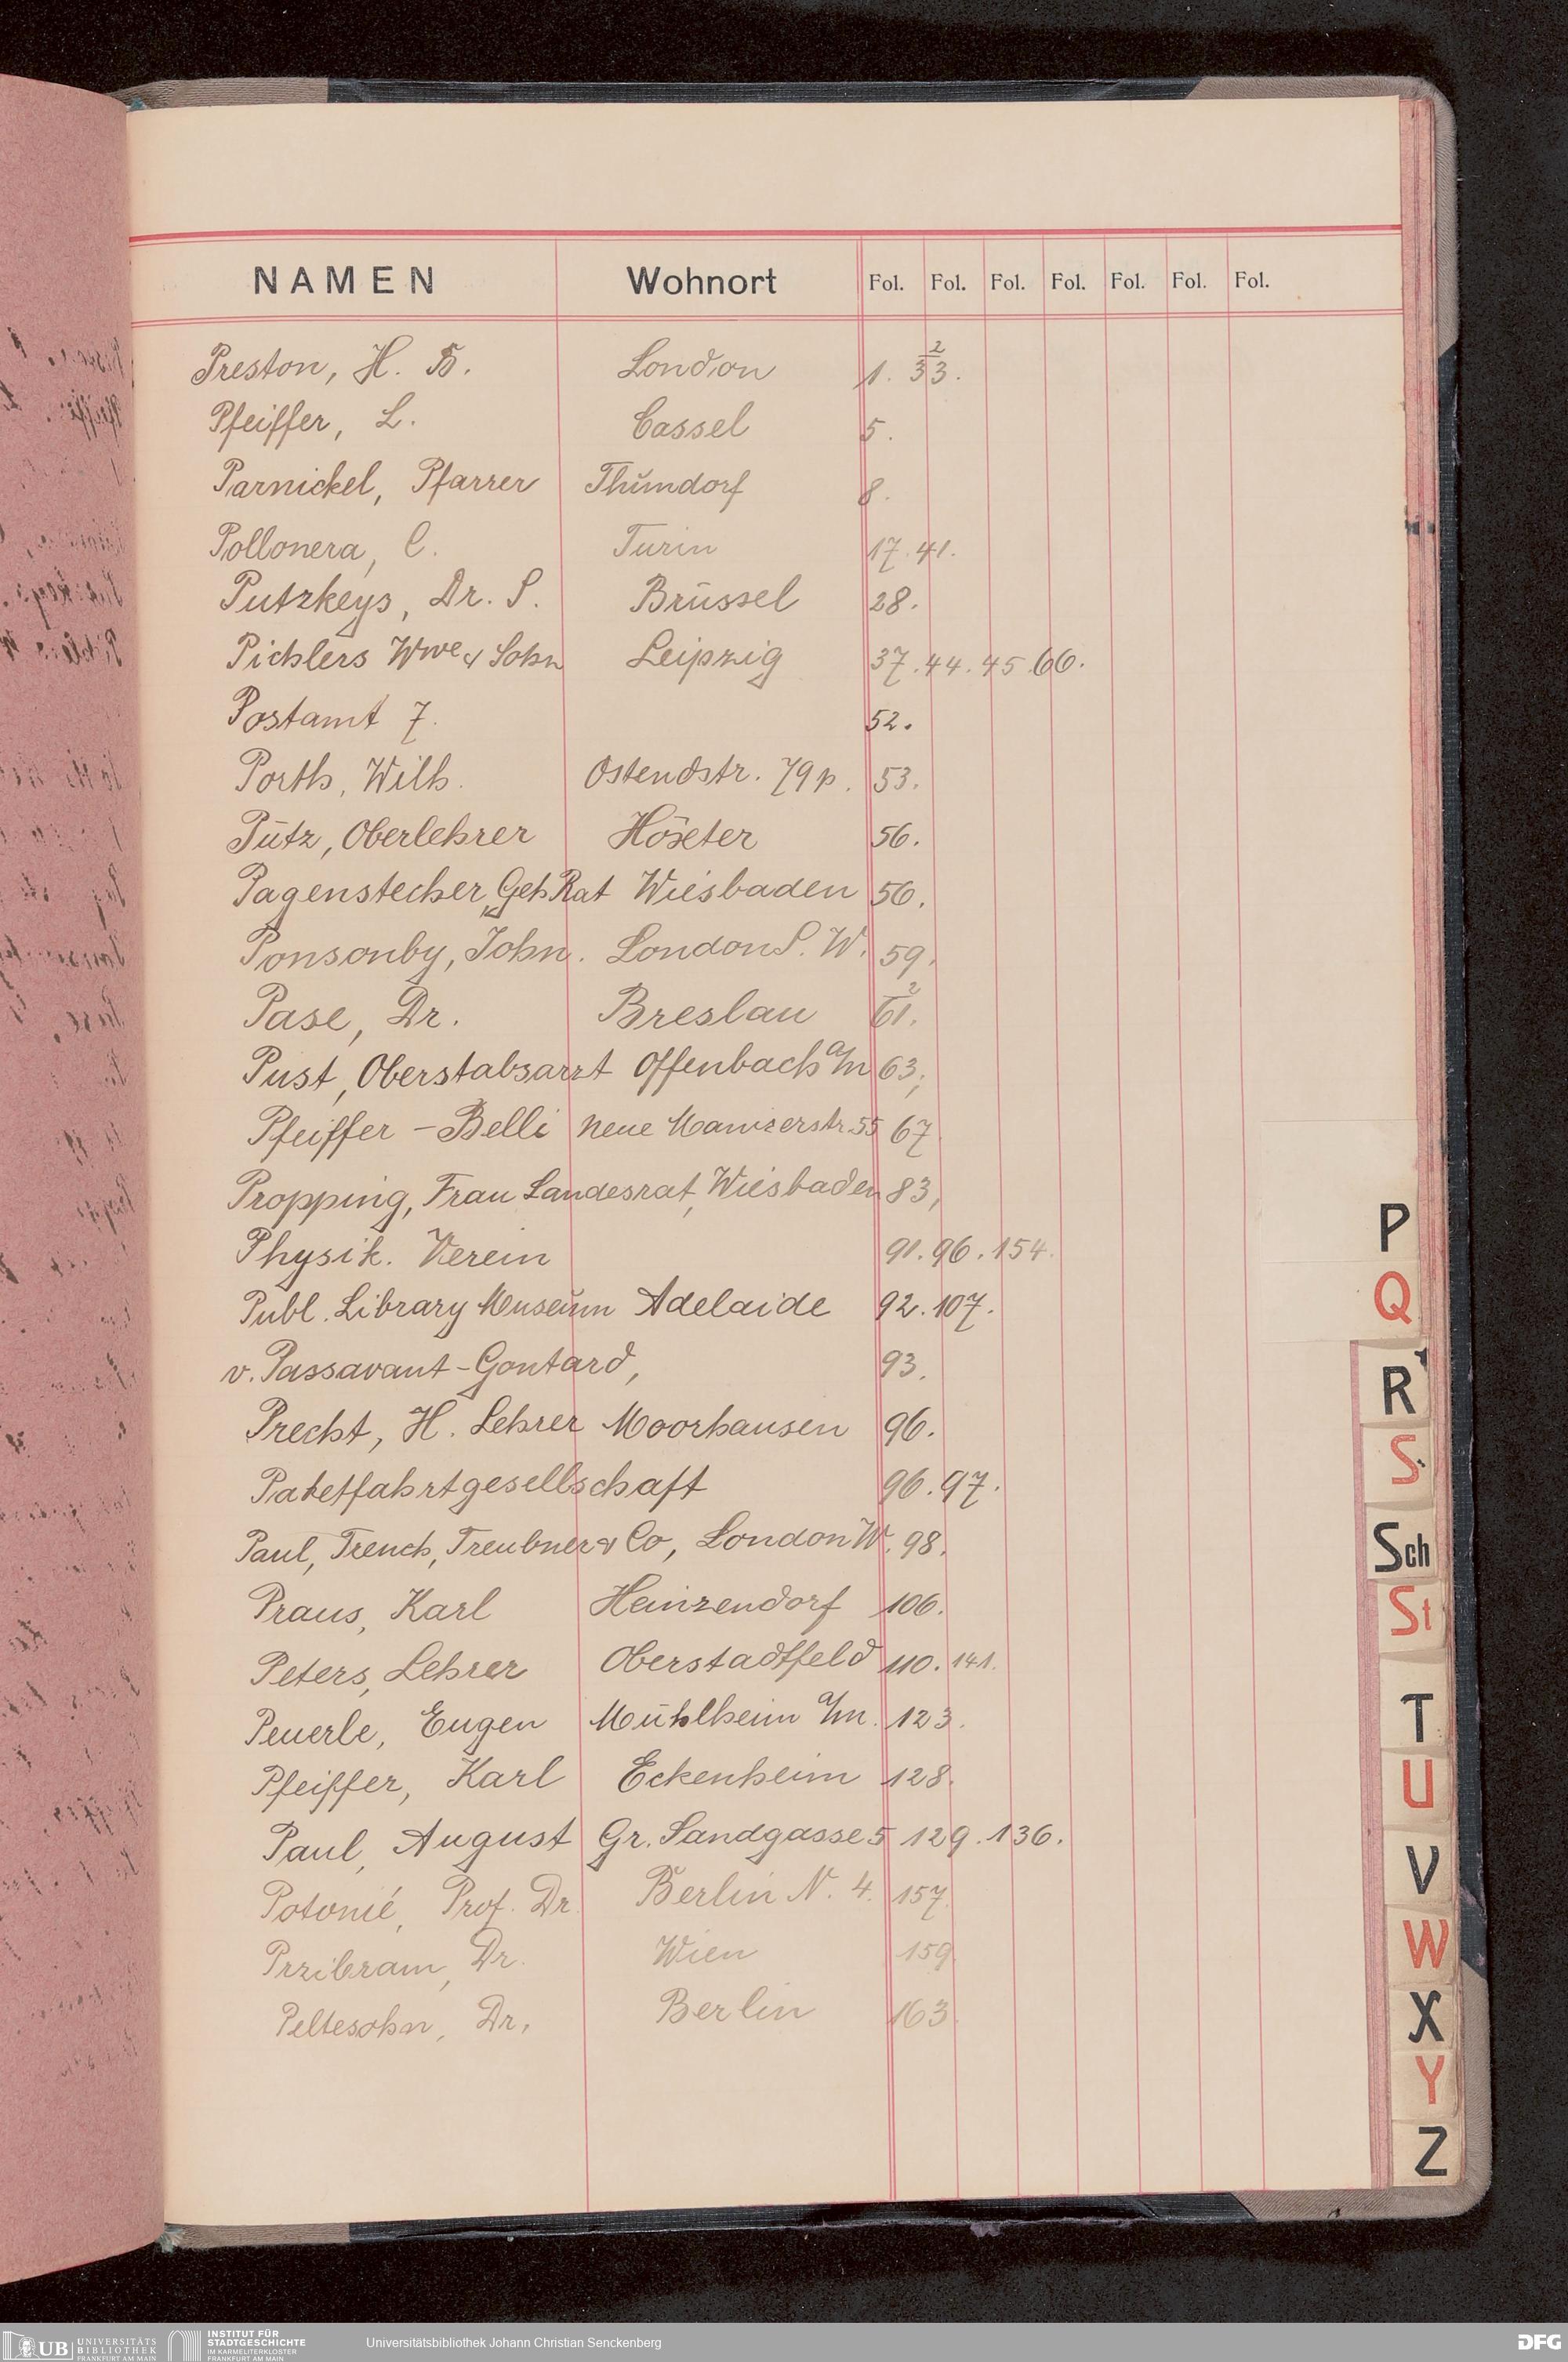 NAMEN Wohnort Fol. Fol. Fol. Fol. Fol. Fol. Fol.
Preston, H. B. London 1. 33². 
Pfeiffer, L. Cassel 5.
Parnickel, Pfarrer Thŭndorf 8.
Pollonera, C. Turin 17. 41.
Putzkeys, Dr. S. Brüssel 28.
Pichlers Wwe & Sohn Leipzig 37. 44. 45. 66.
Postamt 7. 52.
Porth, Wilh. Ostendstr. 79 p. 53.
Pütz, Oberlehrer Höxter 56.
Pagenstecher, Geh Rat Wiesbaden 56.
Ponsonby, John. London S. W. 59.
Pase, Dr. Breslau 61².
Pust, Oberstabsarzt Offenbach a/m 63;
Pfeiffer-Belli Neue Mainzerstr 55 67
Propping, Frau Landesrat, Wiesbaden 83,
Physik. Verein 91. 96. 154.
Publ. Library Museŭm Adelaide 92. 107.
v. Passavant-Gontard, 93.
Precht, H. Lehrer Moorhausen 96.
Paketfahrtgesellschaft 96. 97.
Paul, Trench, Treubner & Co, London W. 98.
Praus, Karl Heinzendorf 106.
Peters, Lehrer Oberstadtfeld 110. 141.
Peuerle, Eugen Mühlheim a/m. 123.
Pfeiffer, Karl Eckenheim 128.
Paul, August Gr. Sandgasse 5 129. 136.
Potonié, Prof. Dr. Berlin N. 4. 157.
Przibram, Dr. Wien 159.
Peltesohn, Dr. Berlin 163.
P
Q
R
S
Sch
St
T
U
V
W
X
Y
Z
UB UNIVERSITÄTS BIBLIOTHEK FRANKFURT AM MAIN
INSTITUT FÜR STADTGESCHICHTE IM KARMELITERKLOSTER FRANKFURT AM MAIN
Universitätsbibliothek Johann Christian Senckenberg
DFG